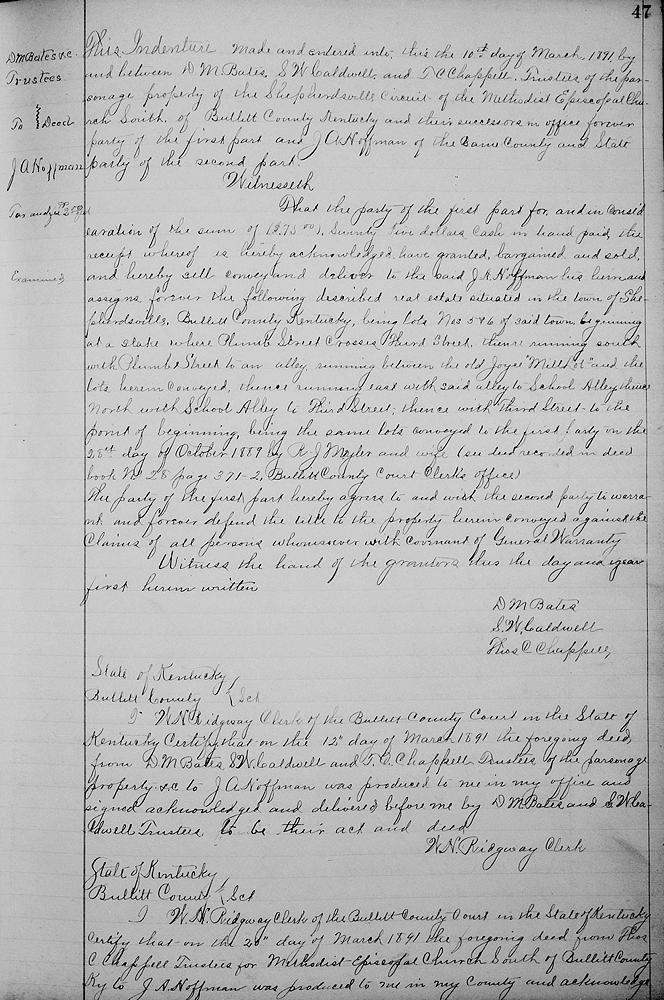 47
D M Bates &c.
Trustees
To } Deed
J A Hoffman
Tax and
Examined
This Indenture made and entered into, this the 10th day of March, 1891, by
and between D M Bates, S W Caldwell, and T C Chappell. Trustees of the par-
sonage property of the Shepherdsville Circuit of the Methodist Episcopal Chu-
rch South, of Bullitt County Kentucky and their successors in office forever
party of the first part and J A Hoffman of the Same County and State
party of the second part.
Witnesseth
That the party of the first part for, and in consid
eration of the sum of ($75.00), Seventy five dollars Cash in hand paid, the
receipt whereof is hereby acknowledged, have granted, bargained and sold,
and hereby sell convey and deliver to the said J. A. Hoffman his heirs and
assigns forever the following described real estate situated in the town of She-
pherdsville, Bullitt County Kentucky, being lots Nos 5 & 6 of said town, beginning
at a stake where Plumb Street Crosses Third Street, thence running south
with Plumb Street to an alley running between the old Joyce "Mill Lot" and the
lots herein conveyed, thence running east with said alley to School Alley thence
North with School Alley to Third Street; thence with Third Street to the
point of beginning, being the same lots conveyed to the first Party on the
28th day of October 1889 by R. J Meyler and wife (see deed recorded in deed
book No 28 page 371-2, Bullitt County Court Clerk's office)
The party of the first part hereby agrees to and with the second party to warra-
nt and forever defend the title to the property herein conveyed against the
Claims of all persons whomsoever with Covenant of General Warranty
Witness the hand of the grantors this the day and year
first herein written
D M Bates
S. W. Caldwell
Thos C Chappell,
State of Kentucky
Bullitt County } Sct
I W. N. Ridgway Clerk of the Bullitt County Court in the State of
Kentucky Certify that on the 12" day of March 1891 the foregoing deed
from D M Bates, S W Caldwell and T. C. Chappell Trustees of the parsonage
property &c to J A Hoffman was produced to me in my office and
signed acknowledged and delivered before me by D M Bates and S W Ca-
ldwell Trustees, to be their act and deed
W. N. Ridgway Clerk
State of Kentucky
Bullitt County } Sct
I W. N. Ridgway Clerk of the Bullitt County Court in the State of Kentucky
Certify that on the day of March 1891 the foregoing deed from Thos
C Chappell Trustees for Methodist Episcopal Church South of Bullitt County
Ky to J A. Hoffman was produced to me in my County and acknowledge